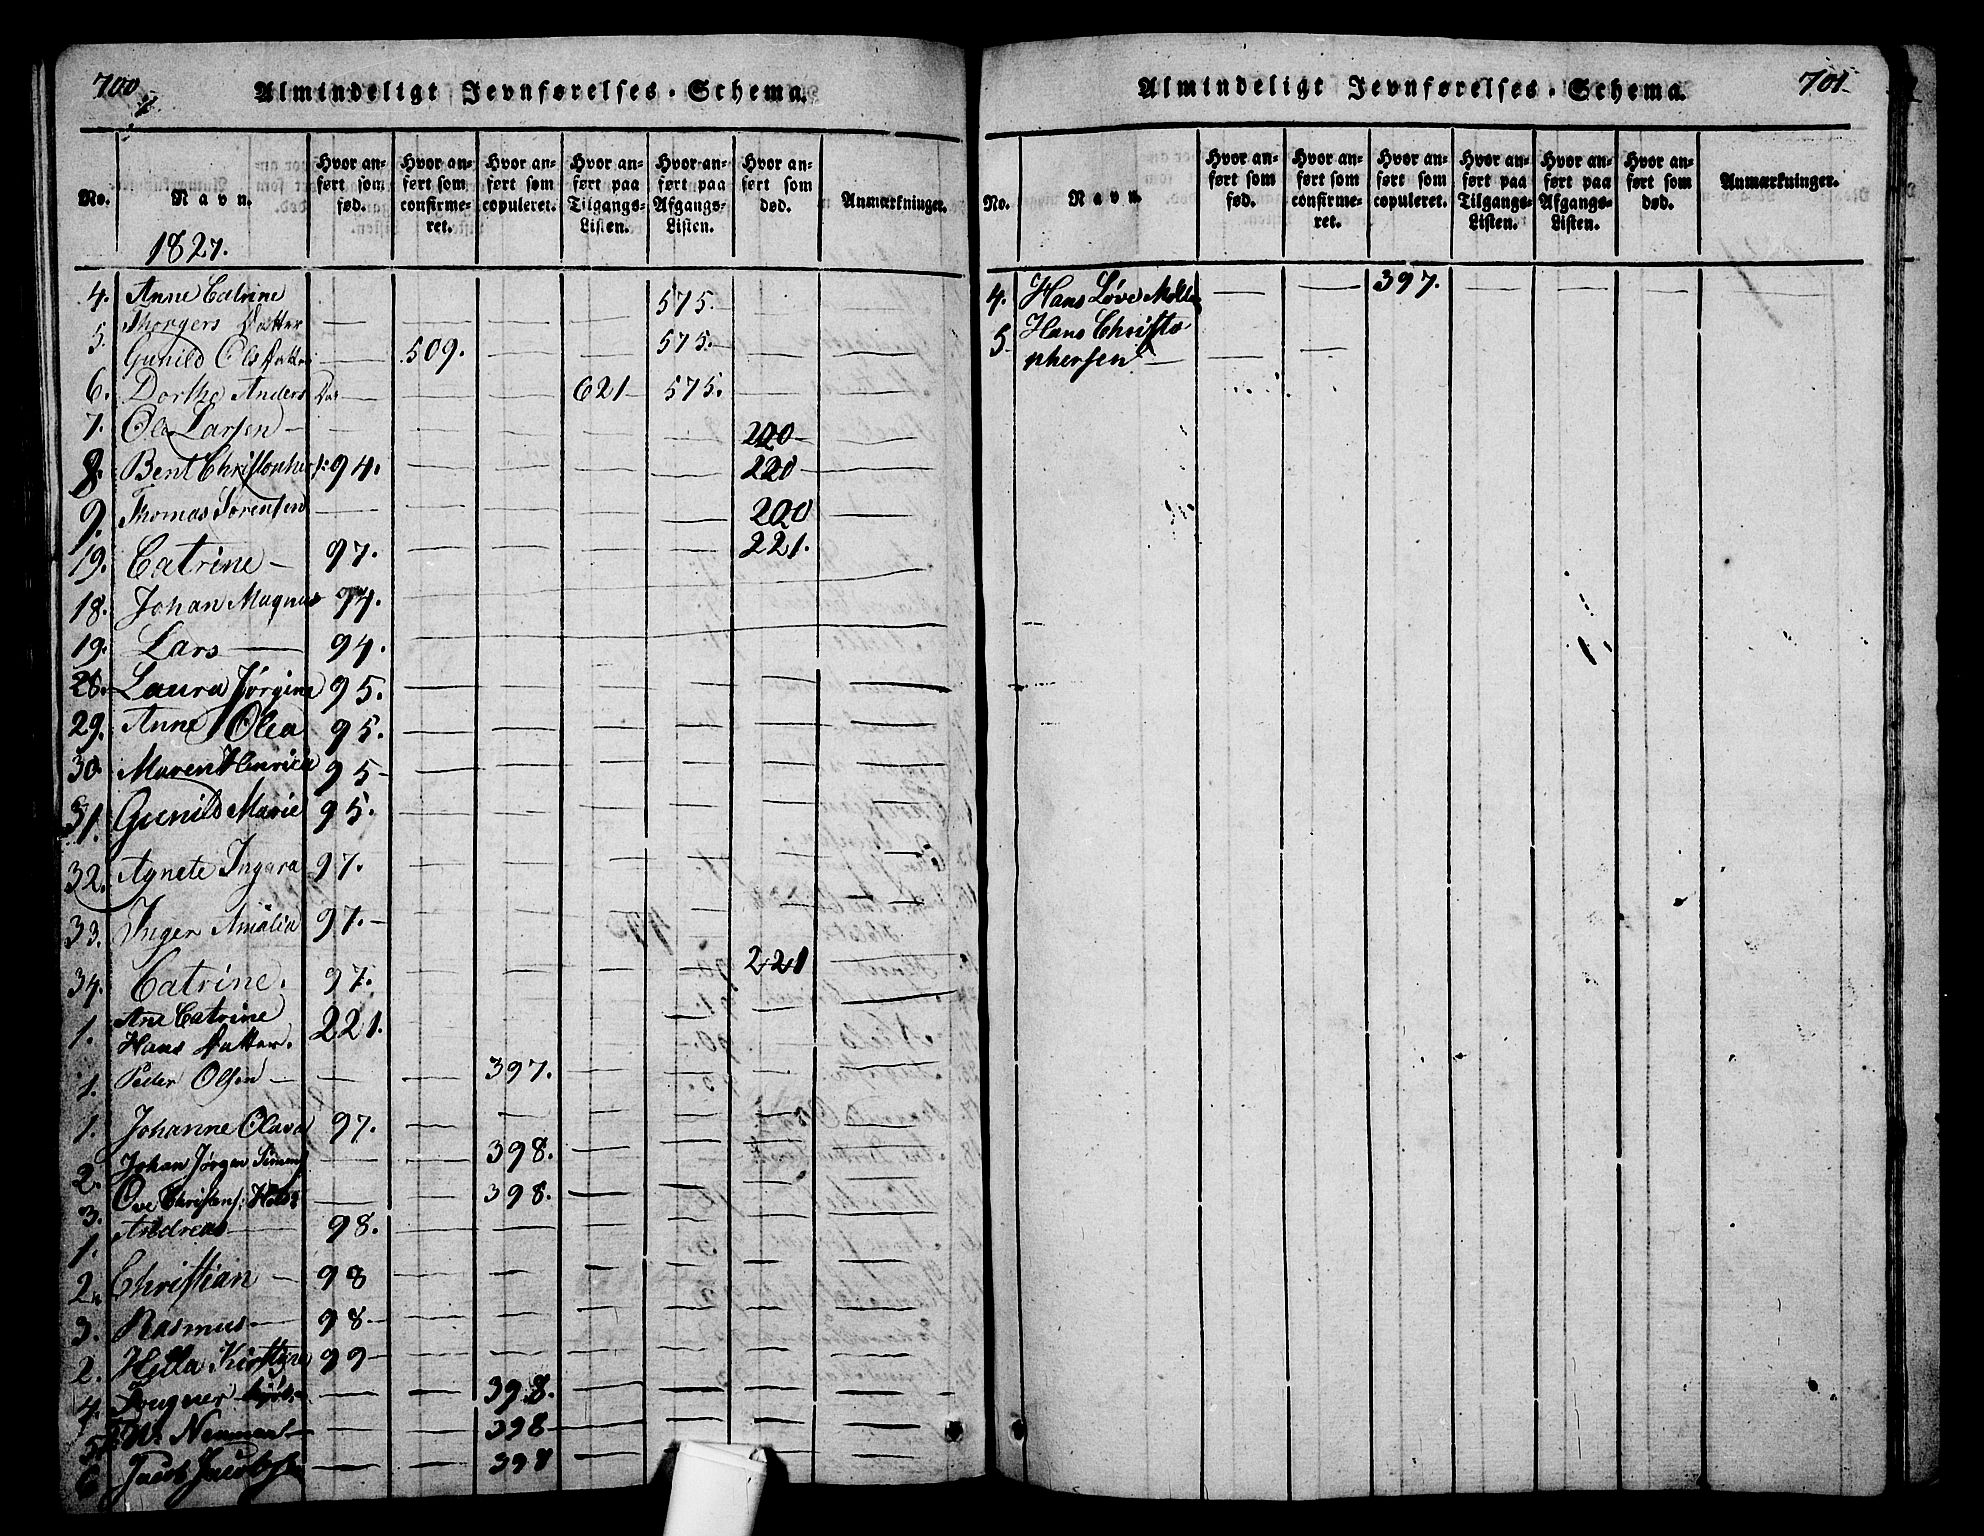 700
Almindeligt Jevnførelses-Schema.
No. Navn. Hvor anført som fød. Hvor anført som confirmeret. Hvor anført som copuleret. Hvor anført paa Tilgangs-Listen. Hvor anført paa Afgangs-Listen. Hvor anført som død. Anmærkninger.
1827.
4. Anne Catrine
Thorgers Datter — — — — 575. — —
5. Gunild Ols Datter — 509. — — 575. — —
6. Dorthe Anders Dat — — — 621 — 575. — —
7. Ole Larsen — — — — — — 220 —
8. Bent Christopher 94. — — — — 220 —
9. Thomas Sørensen — — — — — 220 —
19. Catrine — 97. — — — — 221.
18. Johan Magnus 94.
19. Lars — 94.
28. Laura Jørgine 95. — — — — — —
29. Anne Olea 95. — — — — — —
30. Maren Henrica 95 — — — — — —
31. Gunild Marie 95. — — — — — —
32. Agnete 97. — — — — — —
33. Inger Amalia 97. — — — — — —
34. Catrine. 97. — — — — 221 —
1. Ane Catrine
Hans Datter. 221. — — — — — —
1. Peder Olsen — — — 397. — — — —
1. Johanne Olava 97. — — — — — —
2. Johan Jørgen — — 398. — — — —
3. Ove Christens: — — 398. — — — —
1. Andreas — 98. — — — — — —
2. Christian — 98 — — — — — —
3. Rasmus — 98 — — — — — —
2. Hella Kirstine 99 — — — — — —
4. — — 398. — — — —
5. — — 398 — — — —
6 Jacob — — 398 — — — —
Almindeligt Jevnførelses-Schema.
701
No. Navn. Hvor anført som fød. Hvor anført som confirmeret. Hvor anført som copuleret. Hvor anført paa Tilgangs-Listen. Hvor anført paa Afgangs-Listen. Hvor anført som død. Anmærkninger.
4. Hans Løve — — 397. — — — —
5. Hans Christo-
phersen — — —